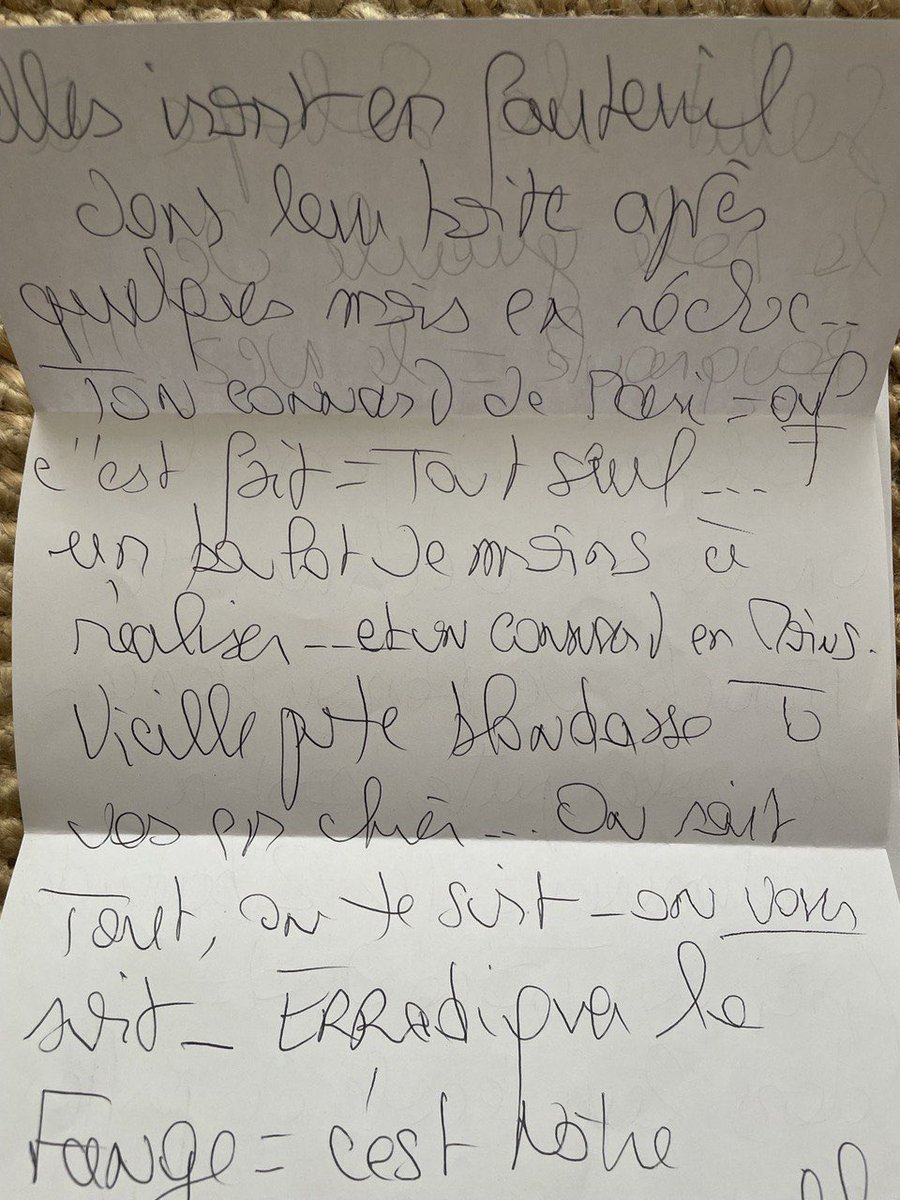 elles iront en fauteuil
dans leur boite après
quelques mois en récluc...
Ton connard de Mari = ouf
c'est fait = Tout seul ...
un boulot de moins à
réaliser -- et un connard en Moins.
Vieille pute blondasse Tu
vas en chier ... On sait
Tout, on te suit - on vous
suit - ERRadiquer la
Fange = c'est Notre